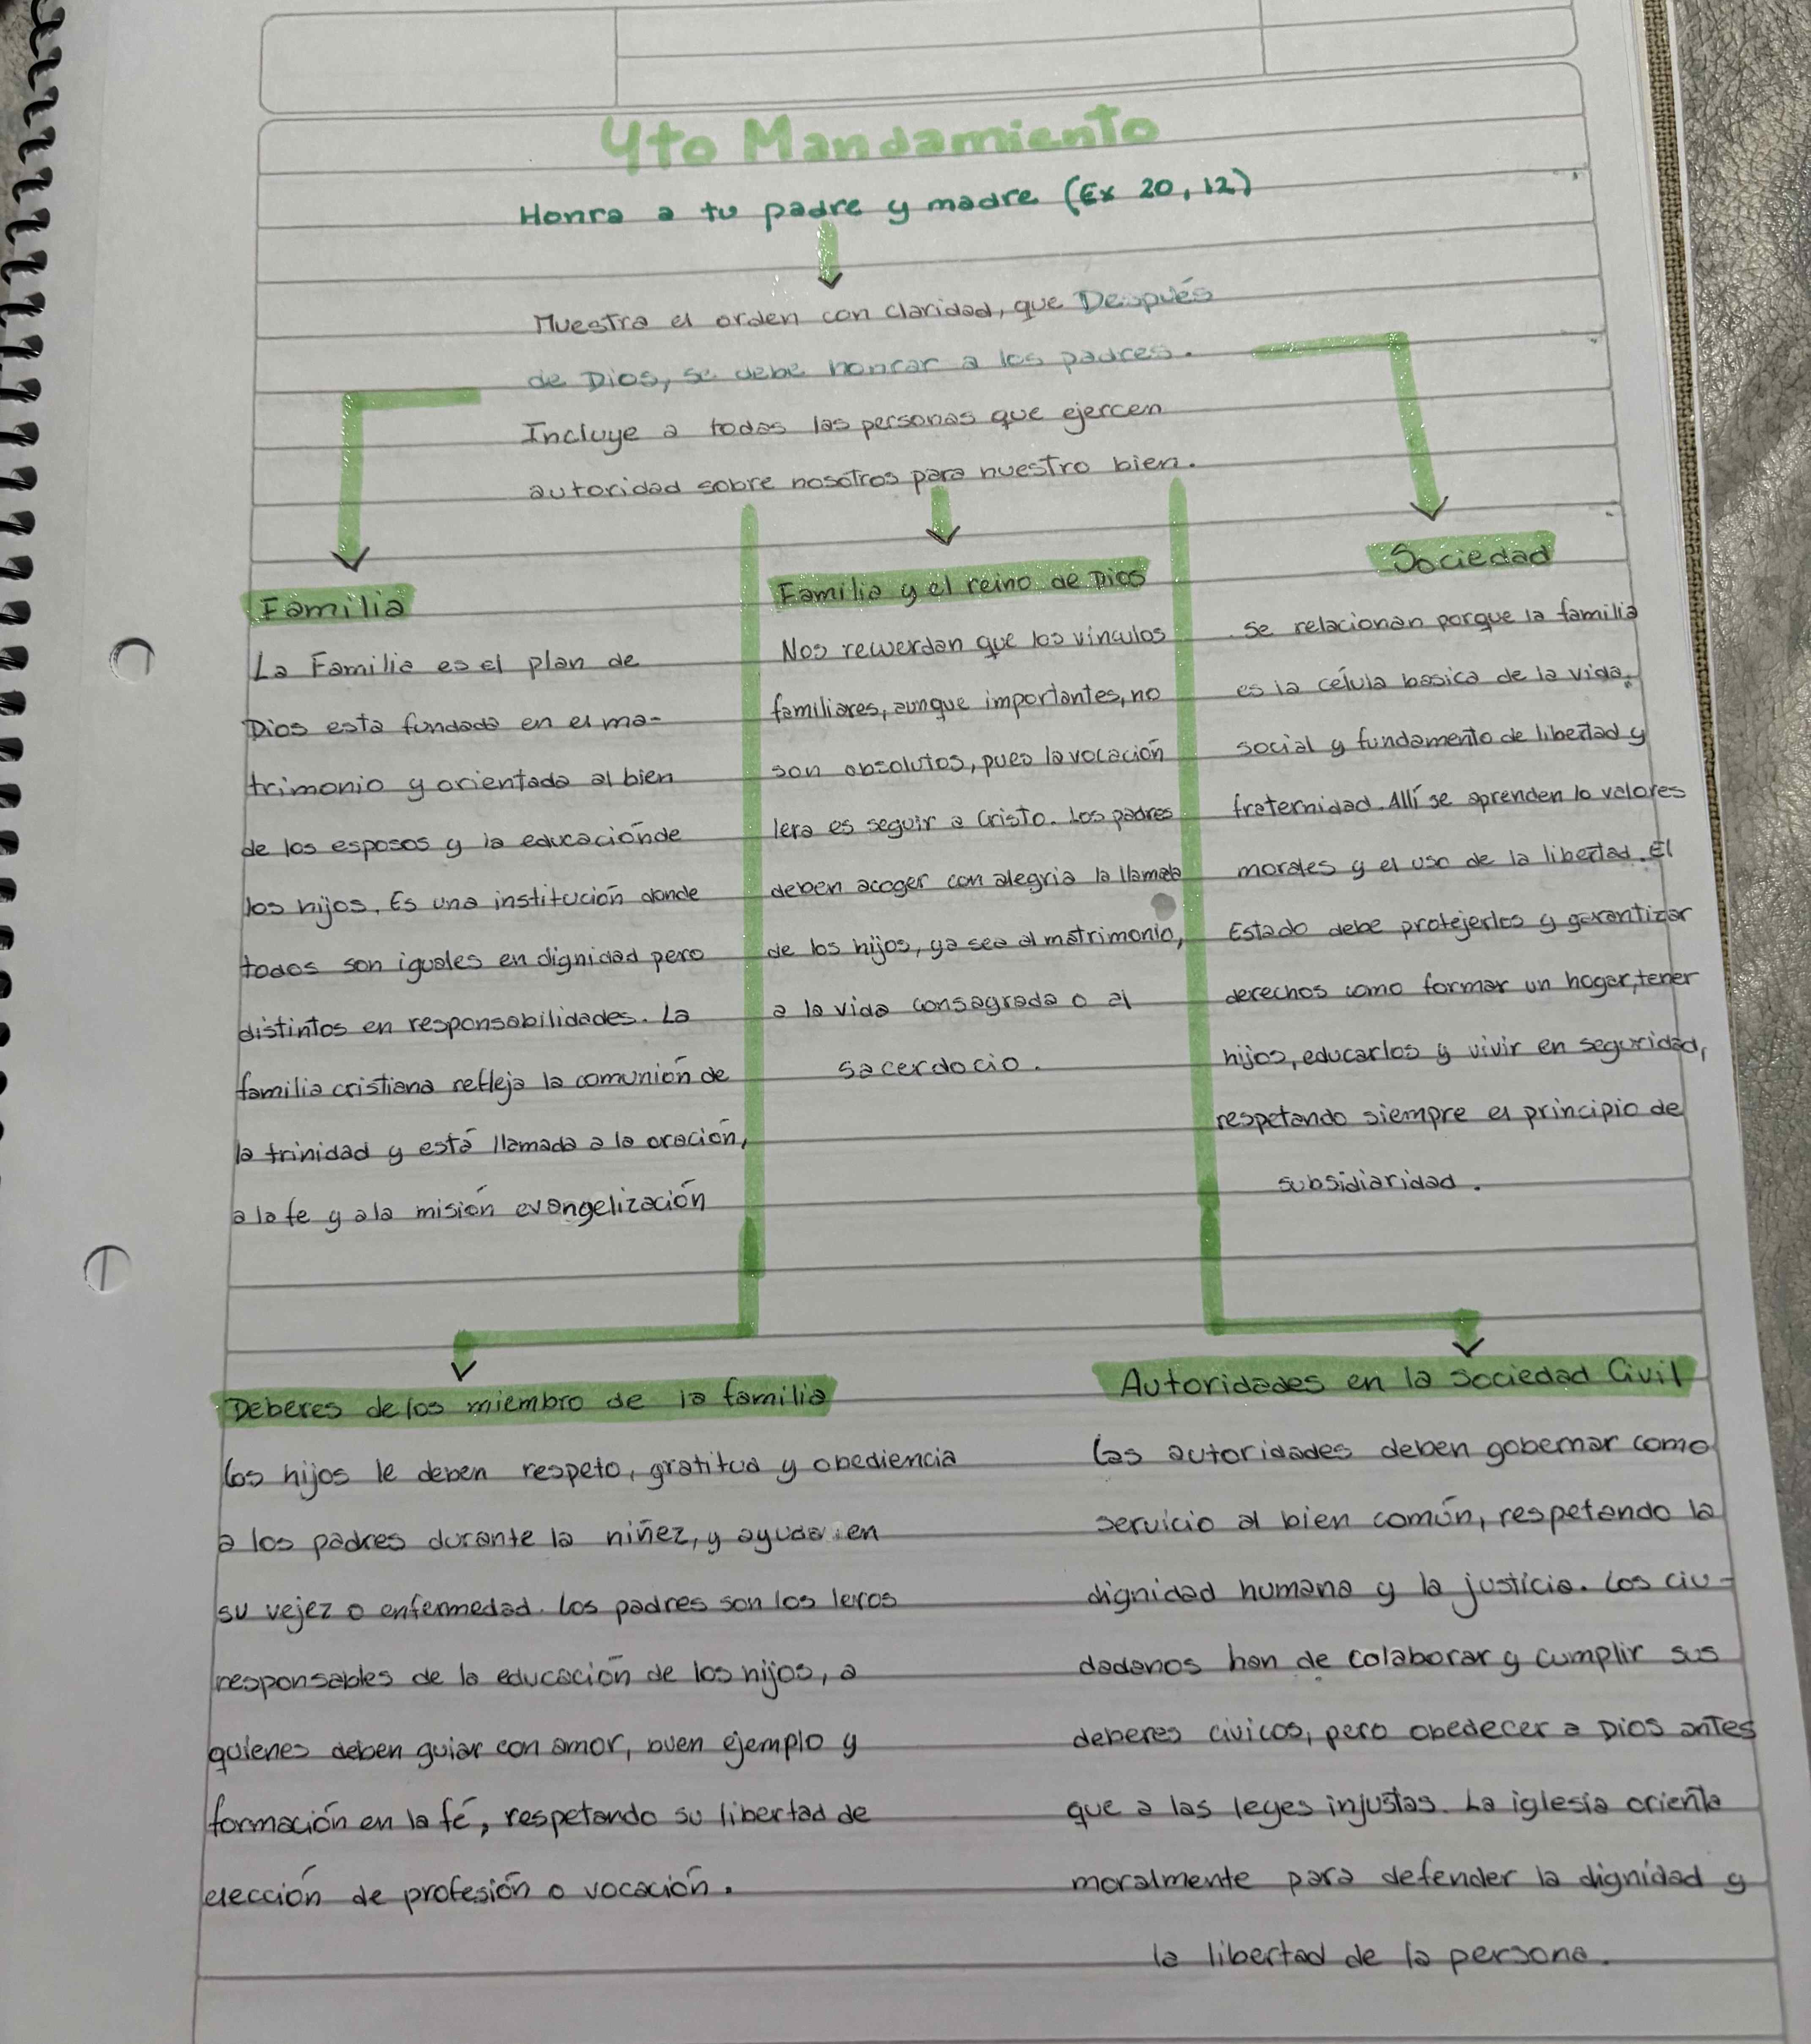 4to Mandamiento
Honra a tu padre y madre (Ex 20, 12)
Muestra el orden con claridad, que Después
de Dios, se debe honrar a los padres.
Incluye a todas las personas que ejercen
autoridad sobre nosotros para nuestro bien.
Familia
La Familia es el plan de
Dios esta fundada en el ma-
trimonio y orientada al bien
de los esposos y la educaciónde
los hijos. Es una institución donde
todos son iguales en dignidad pero
distintos en responsabilidades. La
familia cristiana refleja la comunión de
la trinidad y está llamada a la oración,
a la fe y a la misión evangelización
Familia y el reino de Dios
Nos recuerdan que los vinculos
familiares, aunque importantes, no
son absolutos, pues la vocación
1era es seguir a Cristo. Los padres
deben acoger con alegria la llamada
de los hijos, ya sea al matrimonio,
a la vida consagrada o al
sacerdocio.
Sociedad
se relacionan porque la familia
es la célula basica de la vida
social y fundamento de libertad y
fraternidad. Allí se aprenden lo valores
morales y el uso de la libertad. El
Estado debe protejerlos y garantizar
derechos como formar un hogar, tener
hijos, educarlos y vivir en seguridad,
respetando siempre el principio de
subsidiaridad.
Deberes de los miembro de la familia
Los hijos le deben respeto, gratitud y obediencia
a los padres durante la niñez, y ayuda en
su vejez o enfermedad. Los padres son los 1eros
responsables de la educación de los hijos, a
quienes deben guiar con amor, buen ejemplo y
formación en la fé, respetando su libertad de
elección de profesión o vocación.
Autoridades en la sociedad Civil
Las autoridades deben gobernar como
servicio al bien común, respetando la
dignidad humana y la justicia. Los ciu-
dadanos han de colaborar y cumplir sus
deberes civicos, pero obedecer a Dios antes
que a las leyes injustas. La iglesia orienta
moralmente para defender la dignidad y
la libertad de la persona.